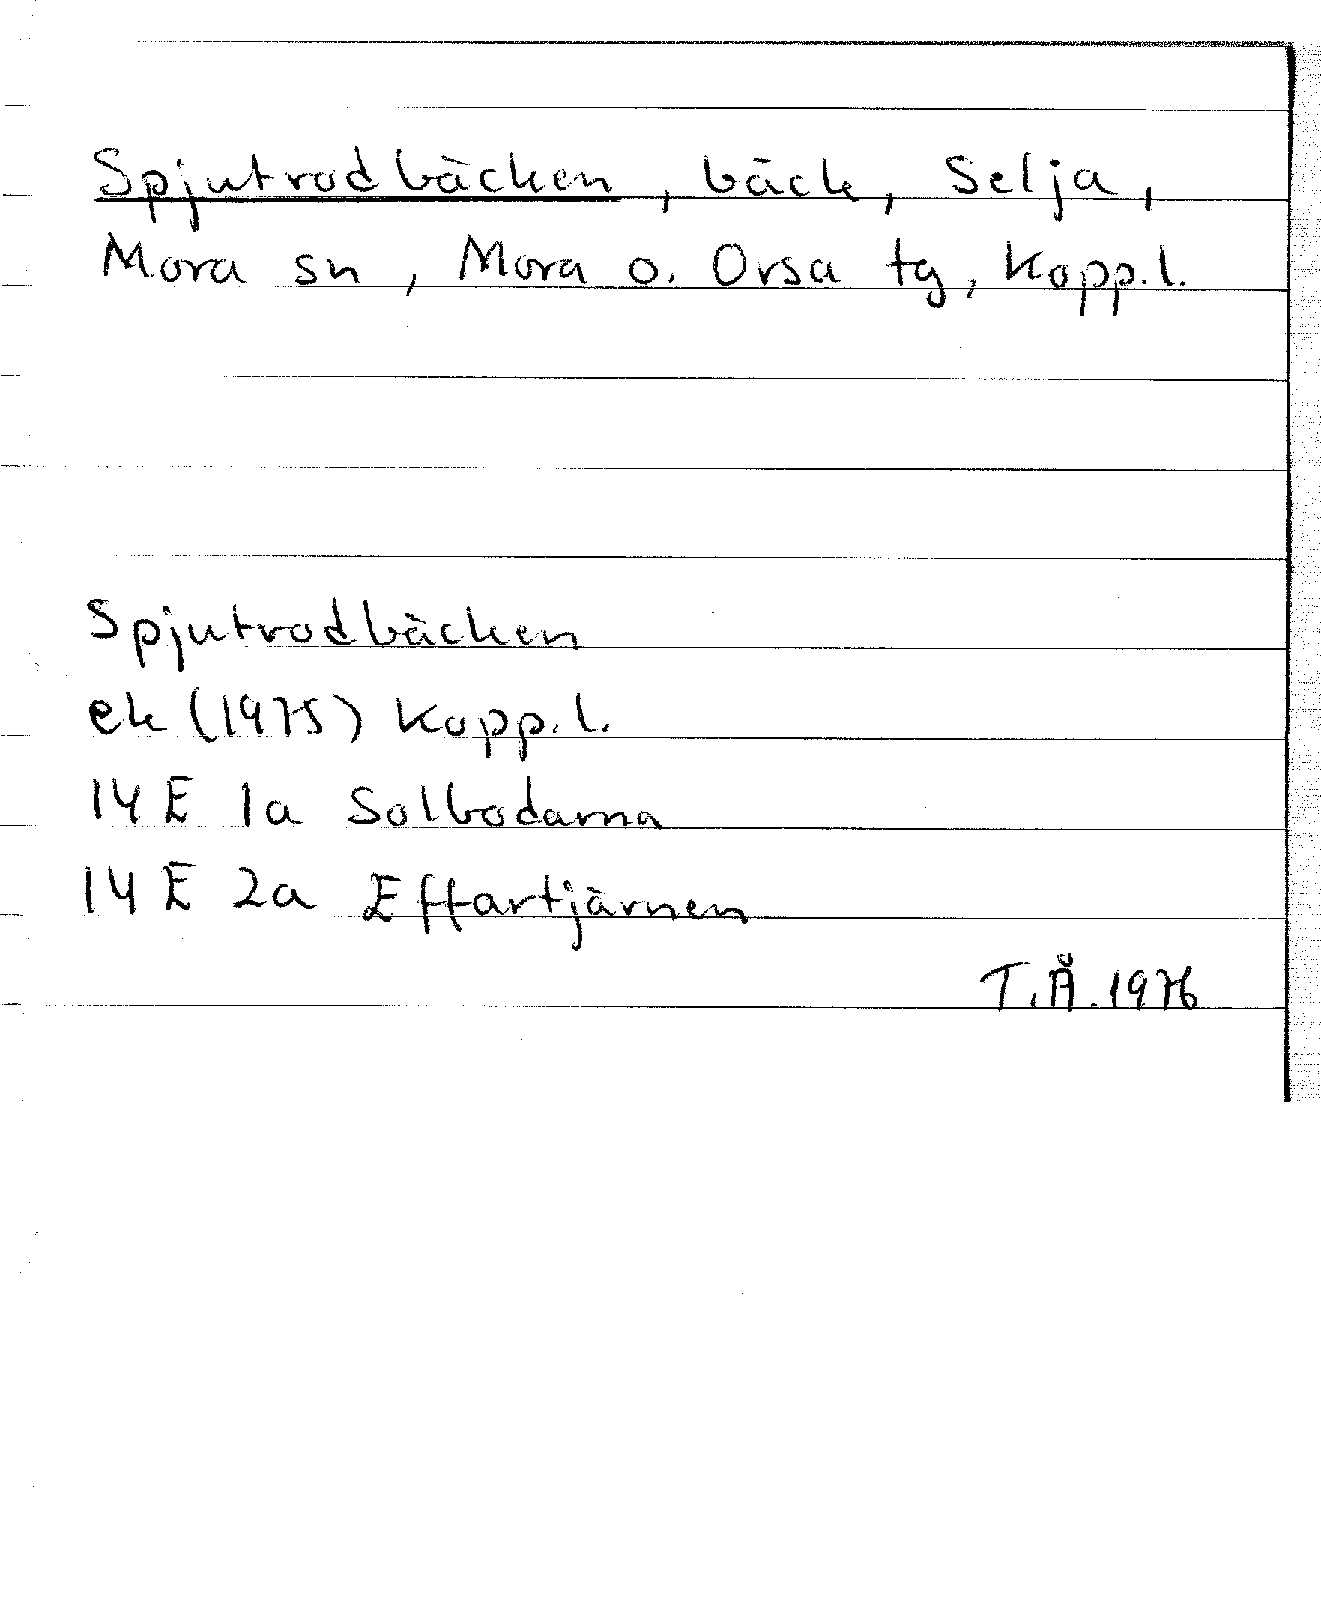 Spjutrodbäcken, bäck, Selja,
Mora sn, Mora o. Orsa tg, Kopp.l.
Spjutrodbäcken
ek (1975) Kopp.l.
14 E 1a Solbodarna
14 E 2a Effartjärnen
T.Å.1976